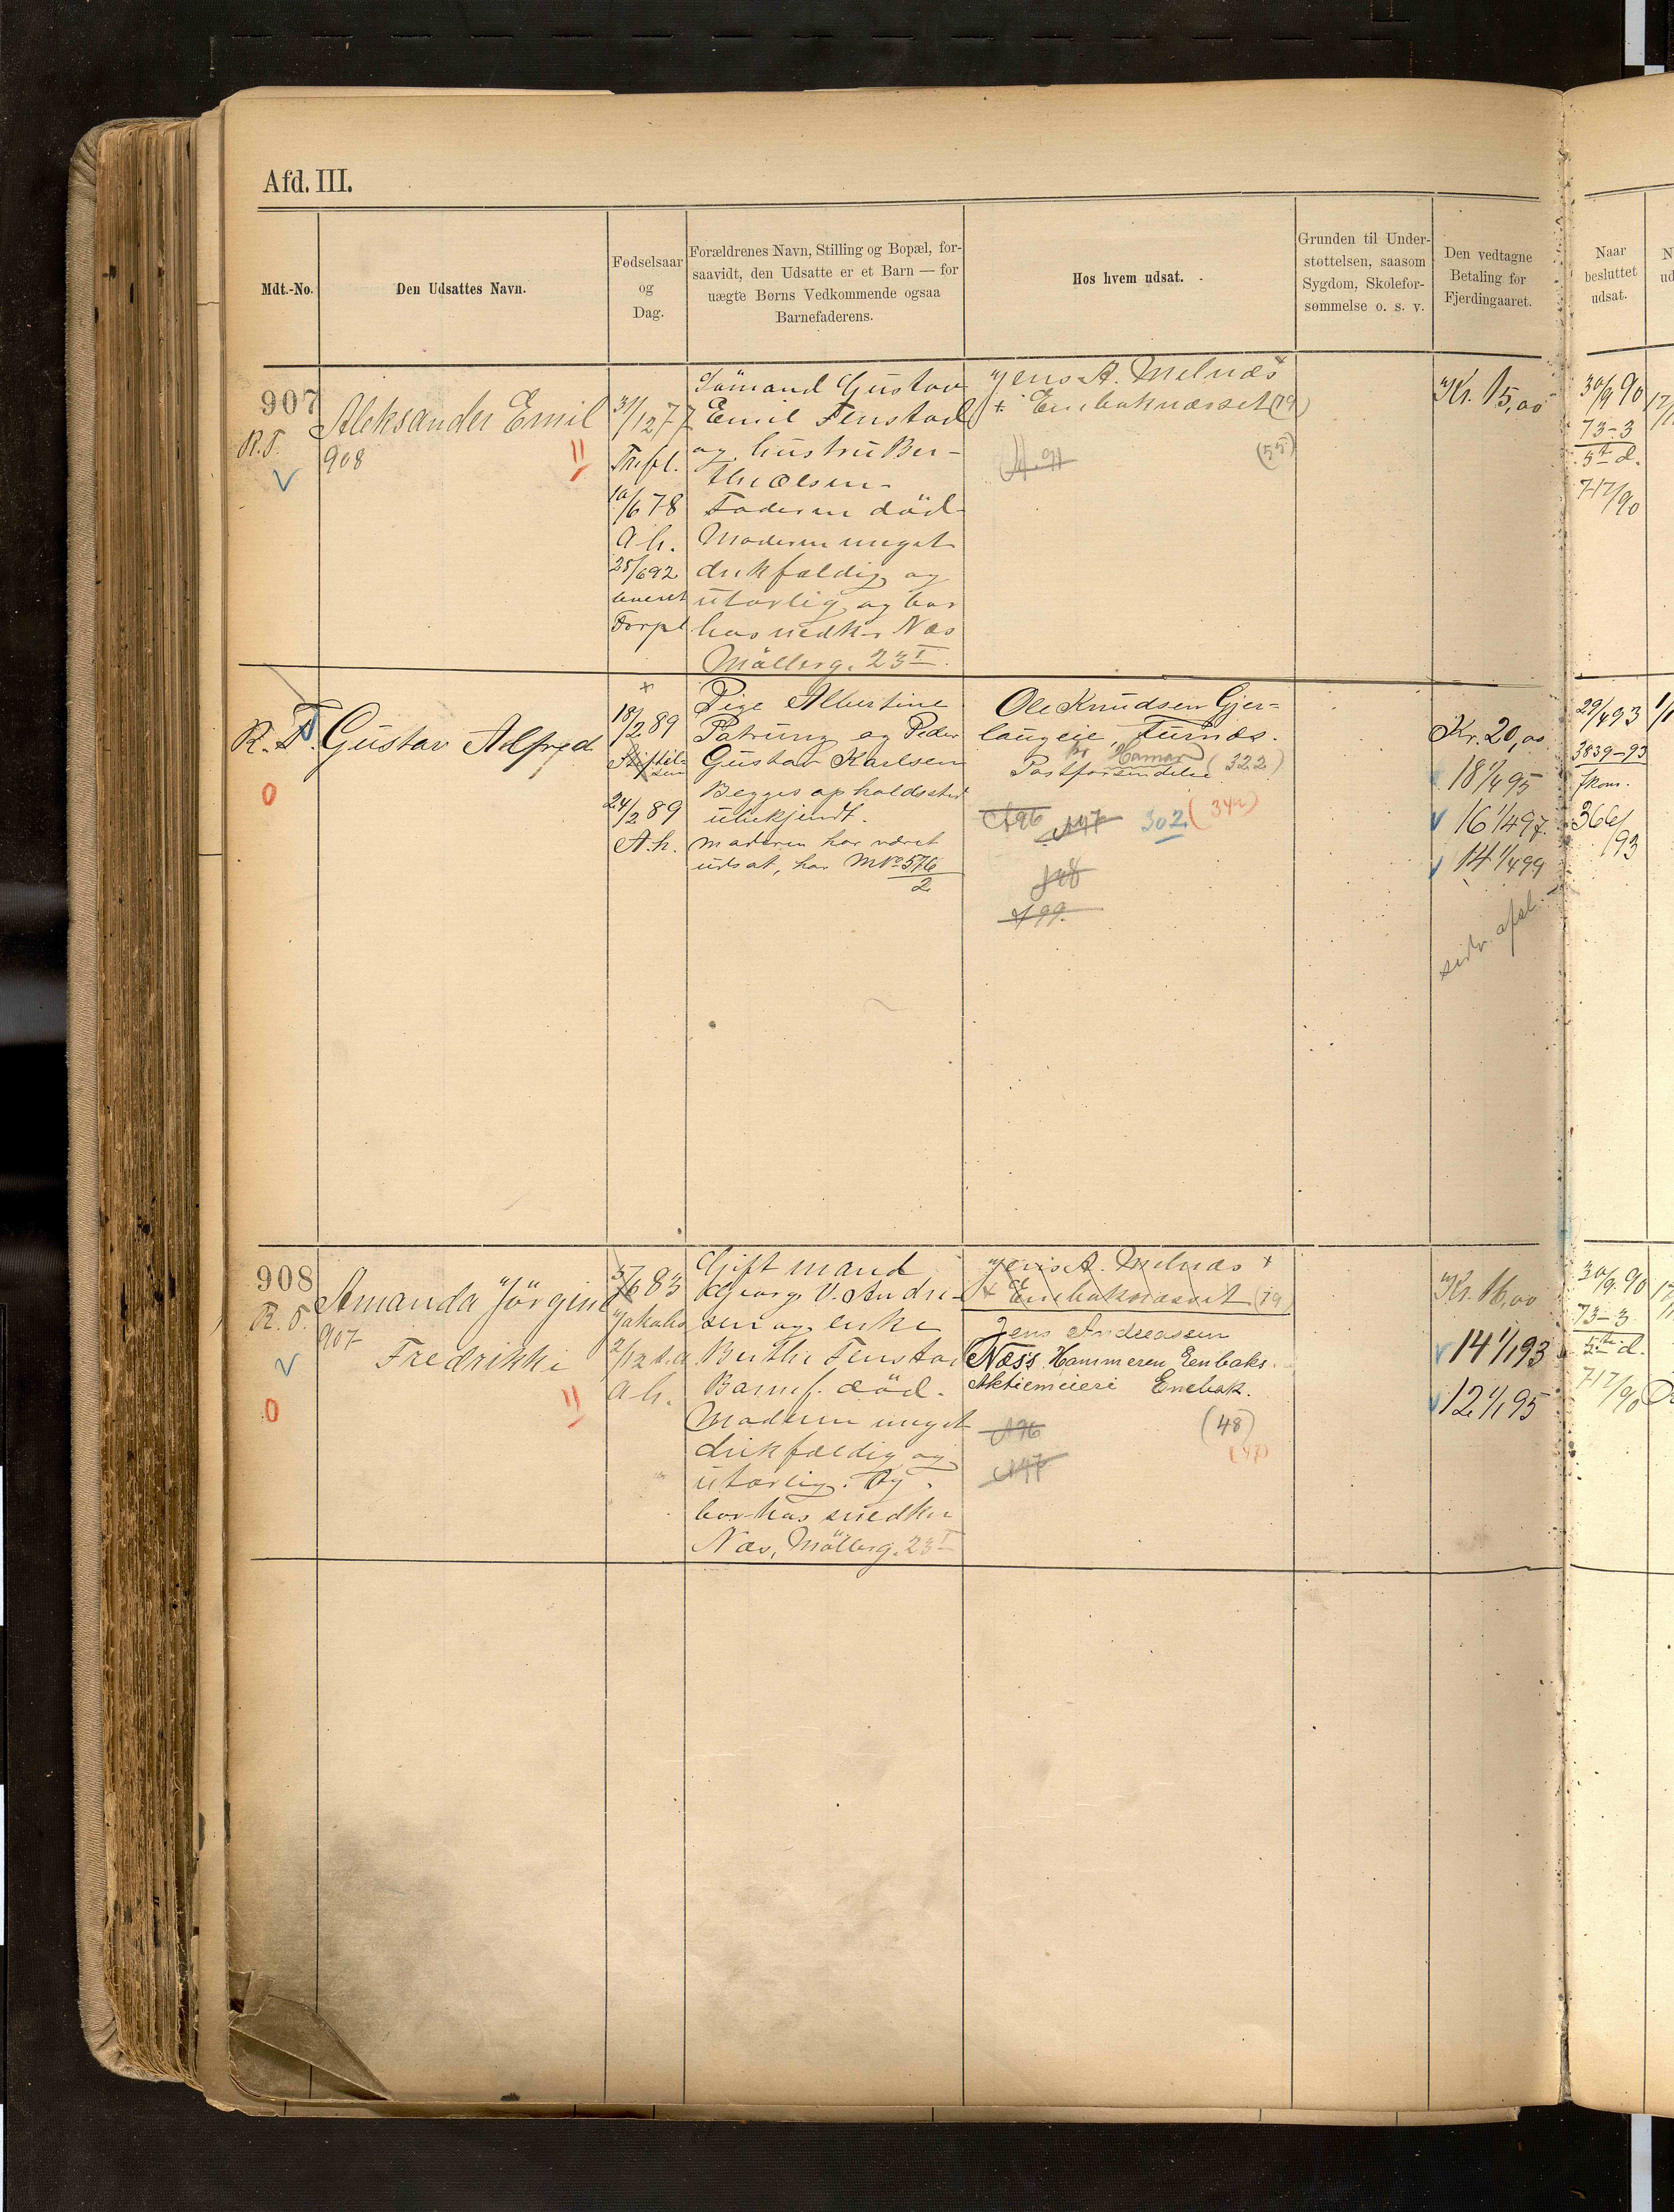 Afd. III.
Mdt.-No.
Den Udsattes Navn.
Fødselsaar
og
Dag.
Forældrenes Navn, Stilling og Bopæl, for-
saavidt, den Udsatte er et Barn — for
uægte Børns Vedkommende ogsaa
Barnefaderens.
Hos hvem udsat.
Grunden til Under-
støttelsen, saasom
Sygdom, Skolefor-
sømmelse o. s. v.
Den vedtagne
Betaling for
Fjerdingaaret.
Naar
besluttet
udsat.
907
R.F.
Aleksander Emil
908
31/12 77
Trefl.
10/6 78
A h.
25/6 92
Forpl
Sömand Gustav
Emil Fenstad
og Hustru Ber-
the Olsen
Faderen död
Moderen meget
drikfældig og
utærlig og bor
hos snedker Næs
Mölberg. 23 I.
Jens A. Melnæs
+ Enebaknæsset (19)
(55)
Kr. 15,00
30/9 90
73-3
5te d.
717/90
R. F.
0
Gustav Alfred
+
18/2 89
Stiftel-
sen
24/2 89
A. h.
Pige Albertine
Patrung og Peder
Gustav Karlsen
Begges opholdssted
ubekjendt.
moderen har været
udsat, har M No 576
2
Ole Knudsen Gjer-
laugeie, Furnæs.
pr Hamar
Postforsendelse (322)
A96 A97 302 (342)
A98
A99
Kr. 20,00
18 1/4 95
16 1/4 97.
14 1/4 99
29/4 93
3839-93
fkom.
366/
193
908
R. F.
0
Amanda Jörgine
907
Fredrikke
5/6 83
Jakobs
2/12 s.a
A h.
Gift mand
Georg V. Andre-
sen og enke
Berthe Fenstad
Barnef. död.
Moderen meget
drikfældig og
utærlig. Og
bor hos snedker
Næs, Mölberg. 23 I
Jens A. Melnæs +
+ Enebaknæsset (19)
Jens Andreassen
Næss Hammeren Enebaks
Aktiemeieri Enebak.
A96 (48)
A97 (47)
Kr. 16,00
14 1/1 93
12 1/1 95
30/9. 90
73-3
5te d.
717/90